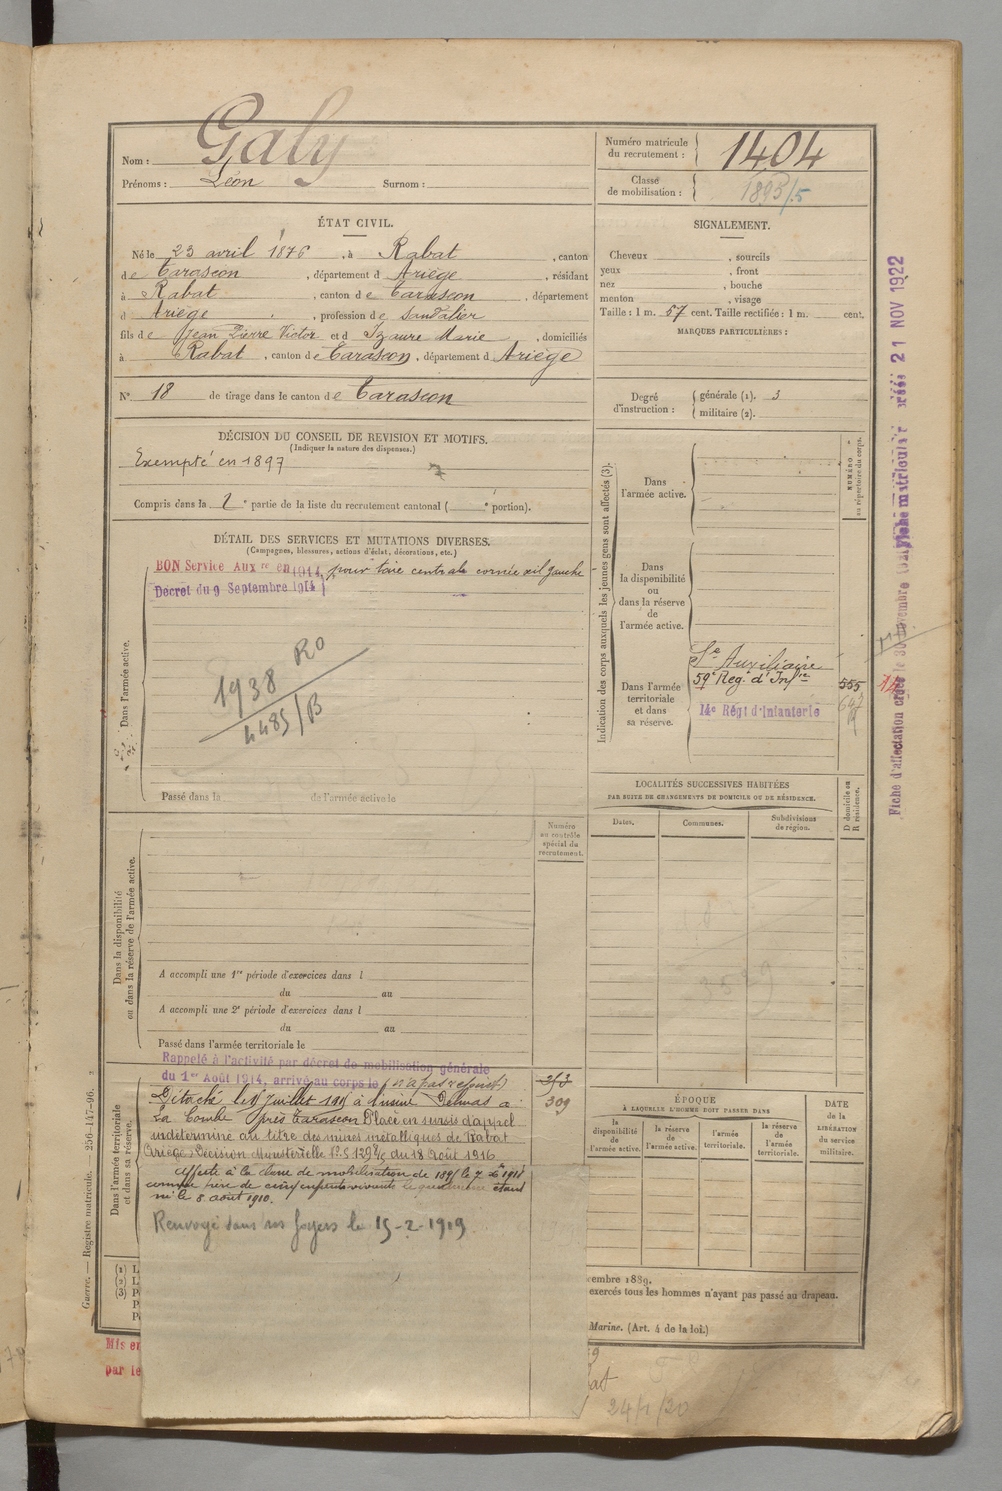 Nom : Galy
Prénoms : Léon Surnom :
Numéro matricule du recrutement : 1404
Classe de mobilisation :
ÉTAT CIVIL.
Né le 23 avril 1876, à Rabat, canton
de Tarascon, département d Ariège, résidant
à Rabat, canton de Tarascon, département
d Ariège, profession de Sandalier
fils de Jean Pierre Victor et d Izaure Marie, domiciliés
à Rabat, canton de Tarascon, département d Ariège
N° 18 de tirage dans le canton de Tarascon
SIGNALEMENT.
Cheveux , sourcils
yeux , front
nez , bouche
menton , visage
Taille : 1 m. 57 cent. Taille rectifiée : 1 m. cent.
MARQUES PARTICULIÈRES :
Degré d'instruction : générale (1). 3
militaire (2).
DÉCISION DU CONSEIL DE REVISION ET MOTIFS.
(Indiquer la nature des dispenses.)
Exempté en 1897
Compris dans la partie de la liste du recrutement cantonal ( ° portion).
DÉTAIL DES SERVICES ET MUTATIONS DIVERSES.
(Campagnes, blessures, actions d'éclat, décorations, etc.)
BON Service Aux re en 1914, pour taie centrale cornée œil gauche
Décret du 9 Septembre 1914
Dans l'armée active.
1938 RO
4485/B
Passé dans la de l'armée active le
Indication des corps auxquels les jeunes gens sont affectés (3).
NUMÉRO au répertoire du corps.
Dans l'armée active.
Dans la disponibilité ou dans la réserve de l'armée active.
Dans l'armée territoriale et dans sa réserve.
Sce Auxiliaire
59e Reg. d'Infie 555
14e Régt d'Infanterie
Fiche d'affectation créée le 30 novembre
Fiche matricule créée 21 NOV 1922
LOCALITÉS SUCCESSIVES HABITÉES
PAR SUITE DE CHANGEMENTS DE DOMICILE OU DE RÉSIDENCE.
Dates. Communes. Subdivisions de région. D domicile ou R résidence.
Dans la disponibilité ou dans la réserve de l'armée active.
Numéro au contrôle spécial du recrutement.
A accompli une 1re période d'exercices dans l
du au
A accompli une 2e période d'exercices dans l
du au
Passé dans l'armée territoriale le
Dans l'armée territoriale et dans sa réserve.
Rappelé à l'activité par décret de mobilisation générale
du 1er Août 1914, arrivé au corps le (n'a pas rejoint)
309
Détaché le Juillet à l'usine Delmas à
La Combe près Tarascon Placé en sursis d'appel
indéterminé au titre des mines métalliques de Rabat
Ariège. Décision Ministérielle du 18 Août 1916
Affecté à la classe de mobilisation de
comme père de cinq enfants vivants le étant
né le 8 août 1910.
Renvoyé dans ses foyers le 15-2-1919
ÉPOQUE
À LAQUELLE L'HOMME DOIT PASSER DANS
la disponibilité de l'armée active.
la réserve de l'armée active.
l'armée territoriale.
la réserve de l'armée territoriale.
DATE de la LIBÉRATION du service militaire.
(1) L
(2) L
(3) P
P
cembre 1889.
exercés tous les hommes n'ayant pas passé au drapeau.
Marine. (Art. 4 de la loi.)
Guerre. — Registre matricule. 256-147-96.
Mis en
par le
24/1/20